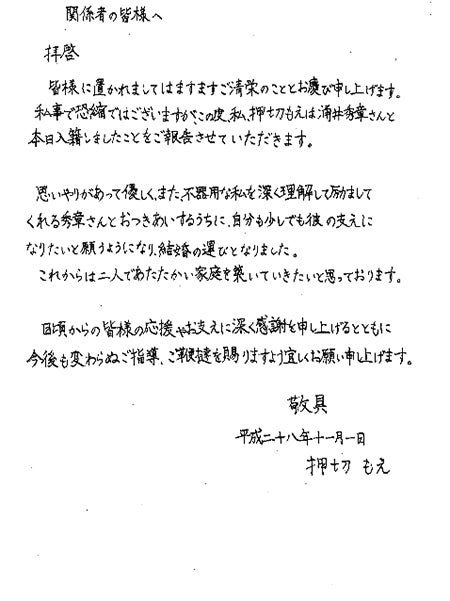 関係者の皆様へ
拝啓
皆様に置かれましてはますますご清栄のこととお慶び申し上げます。
私事で恐縮ではございますがこの度、私、押切もえは涌井秀章さんと
本日入籍しましたことをご報告させていただきます。
思いやりがあって優しく、また、不器用な私を深く理解して励まして
くれる秀章さんとおつきあいするうちに、自分も少しでも彼の支えに
なりたいと願うようになり、結婚の運びとなりました。
これからは二人であたたかい家庭を築いていきたいと思っております。
日頃からの皆様の応援やお支えに深く感謝を申し上げるとともに
今後も変わらぬご指導、ご鞭撻を賜りますよう宜しくお願い申し上げます。
敬具
平成二十八年十一月一日
押切 もえ